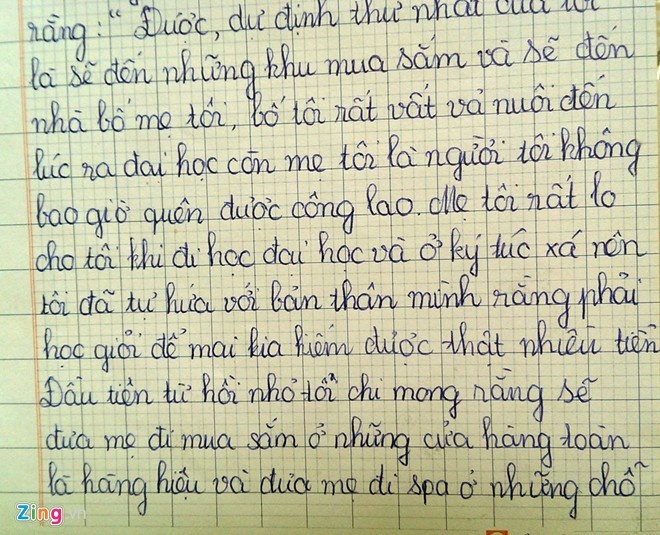 rằng: "Được, dự định thứ nhất của tôi
là sẽ đến những khu mua sắm và sẽ đến
nhà bố mẹ tôi, bố tôi rất vất vả nuôi đến
lúc ra đại học còn mẹ tôi là người tôi không
bao giờ quên được công lao. Mẹ tôi rất lo
cho tôi khi đi học đại học và ở ký túc xá nên
tôi đã tự hứa với bản thân mình rằng phải
học giỏi để mai kia kiếm được thật nhiều tiền
Đầu tiên từ hồi nhỏ tôi chỉ mong rằng sẽ
đưa mẹ đi mua sắm ở những cửa hàng toàn
là hàng hiệu và đưa mẹ đi spa ở những chỗ
Zing.vn